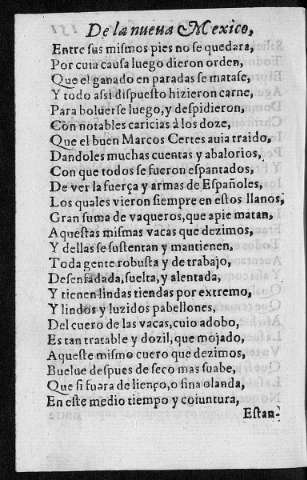 De la nueua Mexico,
Entre sus mismos pies no se quedara,
Por cuia causa luego dieron orden,
Que el ganado en paradas se matase,
Y todo assi dispuesto hizieron carne,
Para boluerse luego, y despidieron,
Con notables caricias à los doze,
Que el buen Marcos Certes auia traido,
Dandoles muchas cuentas y abalorios,
Con que todos se fueron espantados,
De ver la fuerça y armas de Españoles,
Los quales vieron siempre en estos llanos,
Gran suma de vaqueros, que apie matan,
Aquestas mismas vacas que dezimos,
Y dellas se sustentan y mantienen,
Toda gente robusta y de trabajo,
Desenfadada, suelta, y alentada,
Y tienen lindas tiendas por extremo,
Y lindos y luzidos pabellones,
Del cuero de las vacas, cuio adobo,
Es tan tratable y dozil, que mojado,
Aqueste mismo cuero que dezimos,
Buelue despues de seco mas suabe,
Que si fuara de lienço, o fina olanda,
En este medio tiempo y coiuntura,
Estan-